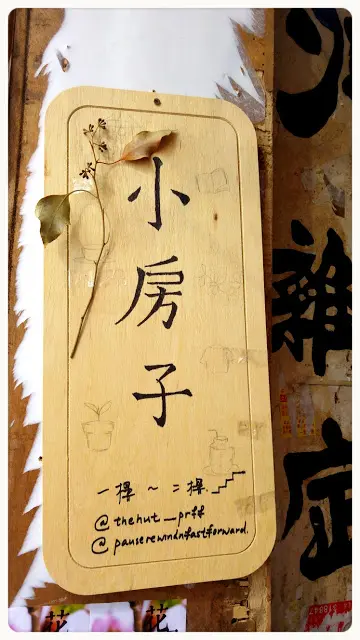 小房子
一樓 ~ 二樓
@thehut_prff
@pauserewindnfastforward.
雜
花
花